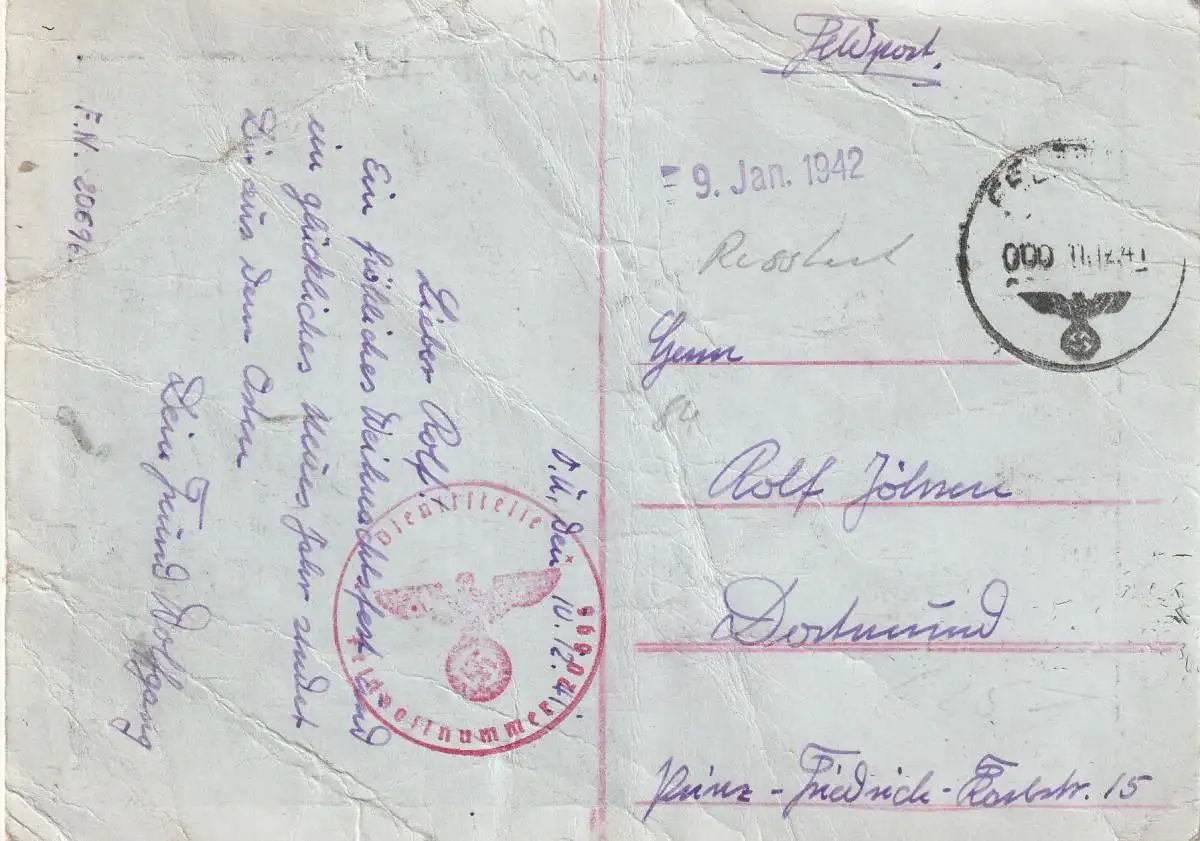 Feldpost.
- 9. Jan. 1942
000 11.12.41
Herrn
84
Rolf Jöhren
Dortmund
Prinz-Friedrich-Karlstr. 15
O.U., den 10.12.41.
Lieber Rolf!
Ein fröhliches Weihnachtsfest und
ein glückliches neues Jahr sendet
Dir aus dem Osten
Dein Freund Wolfgang
F.N. 20696.
Dienststelle
Feldpostnummer 20696